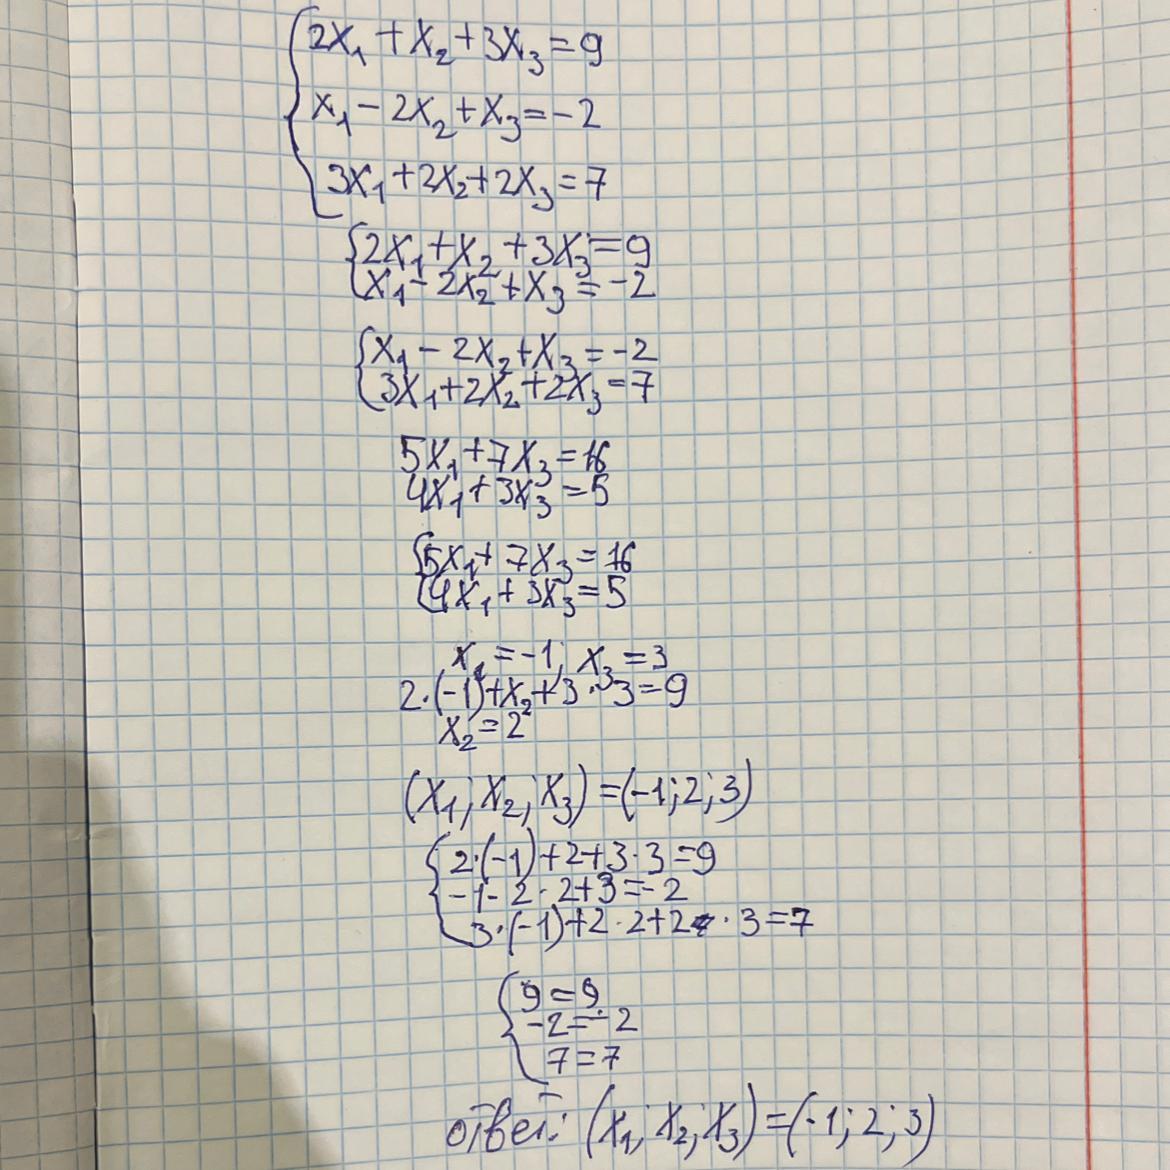 2x₁ + x₂ + 3x₃ = 9
x₁ - 2x₂ + x₃ = -2
3x₁ + 2x₂ + 2x₃ = 7
2x₁ + x₂ + 3x₃ = 9
x₁ - 2x₂ + x₃ = -2
x₁ - 2x₂ + x₃ = -2
3x₁ + 2x₂ + 2x₃ = 7
5x₁ + 7x₃ = 16
4x₁ + 3x₃ = 5
5x₁ + 7x₃ = 16
4x₁ + 3x₃ = 5
x₁ = -1; x₃ = 3
2·(-1) + x₂ + 3·3 = 9
x₂ = 2
(x₁; x₂; x₃) = (-1; 2; 3)
2·(-1) + 2 + 3·3 = 9
-1 - 2·2 + 3 = -2
3·(-1) + 2·2 + 2·3 = 7
9 = 9
-2 = -2
7 = 7
ответ: (x₁; x₂; x₃) = (-1; 2; 3)